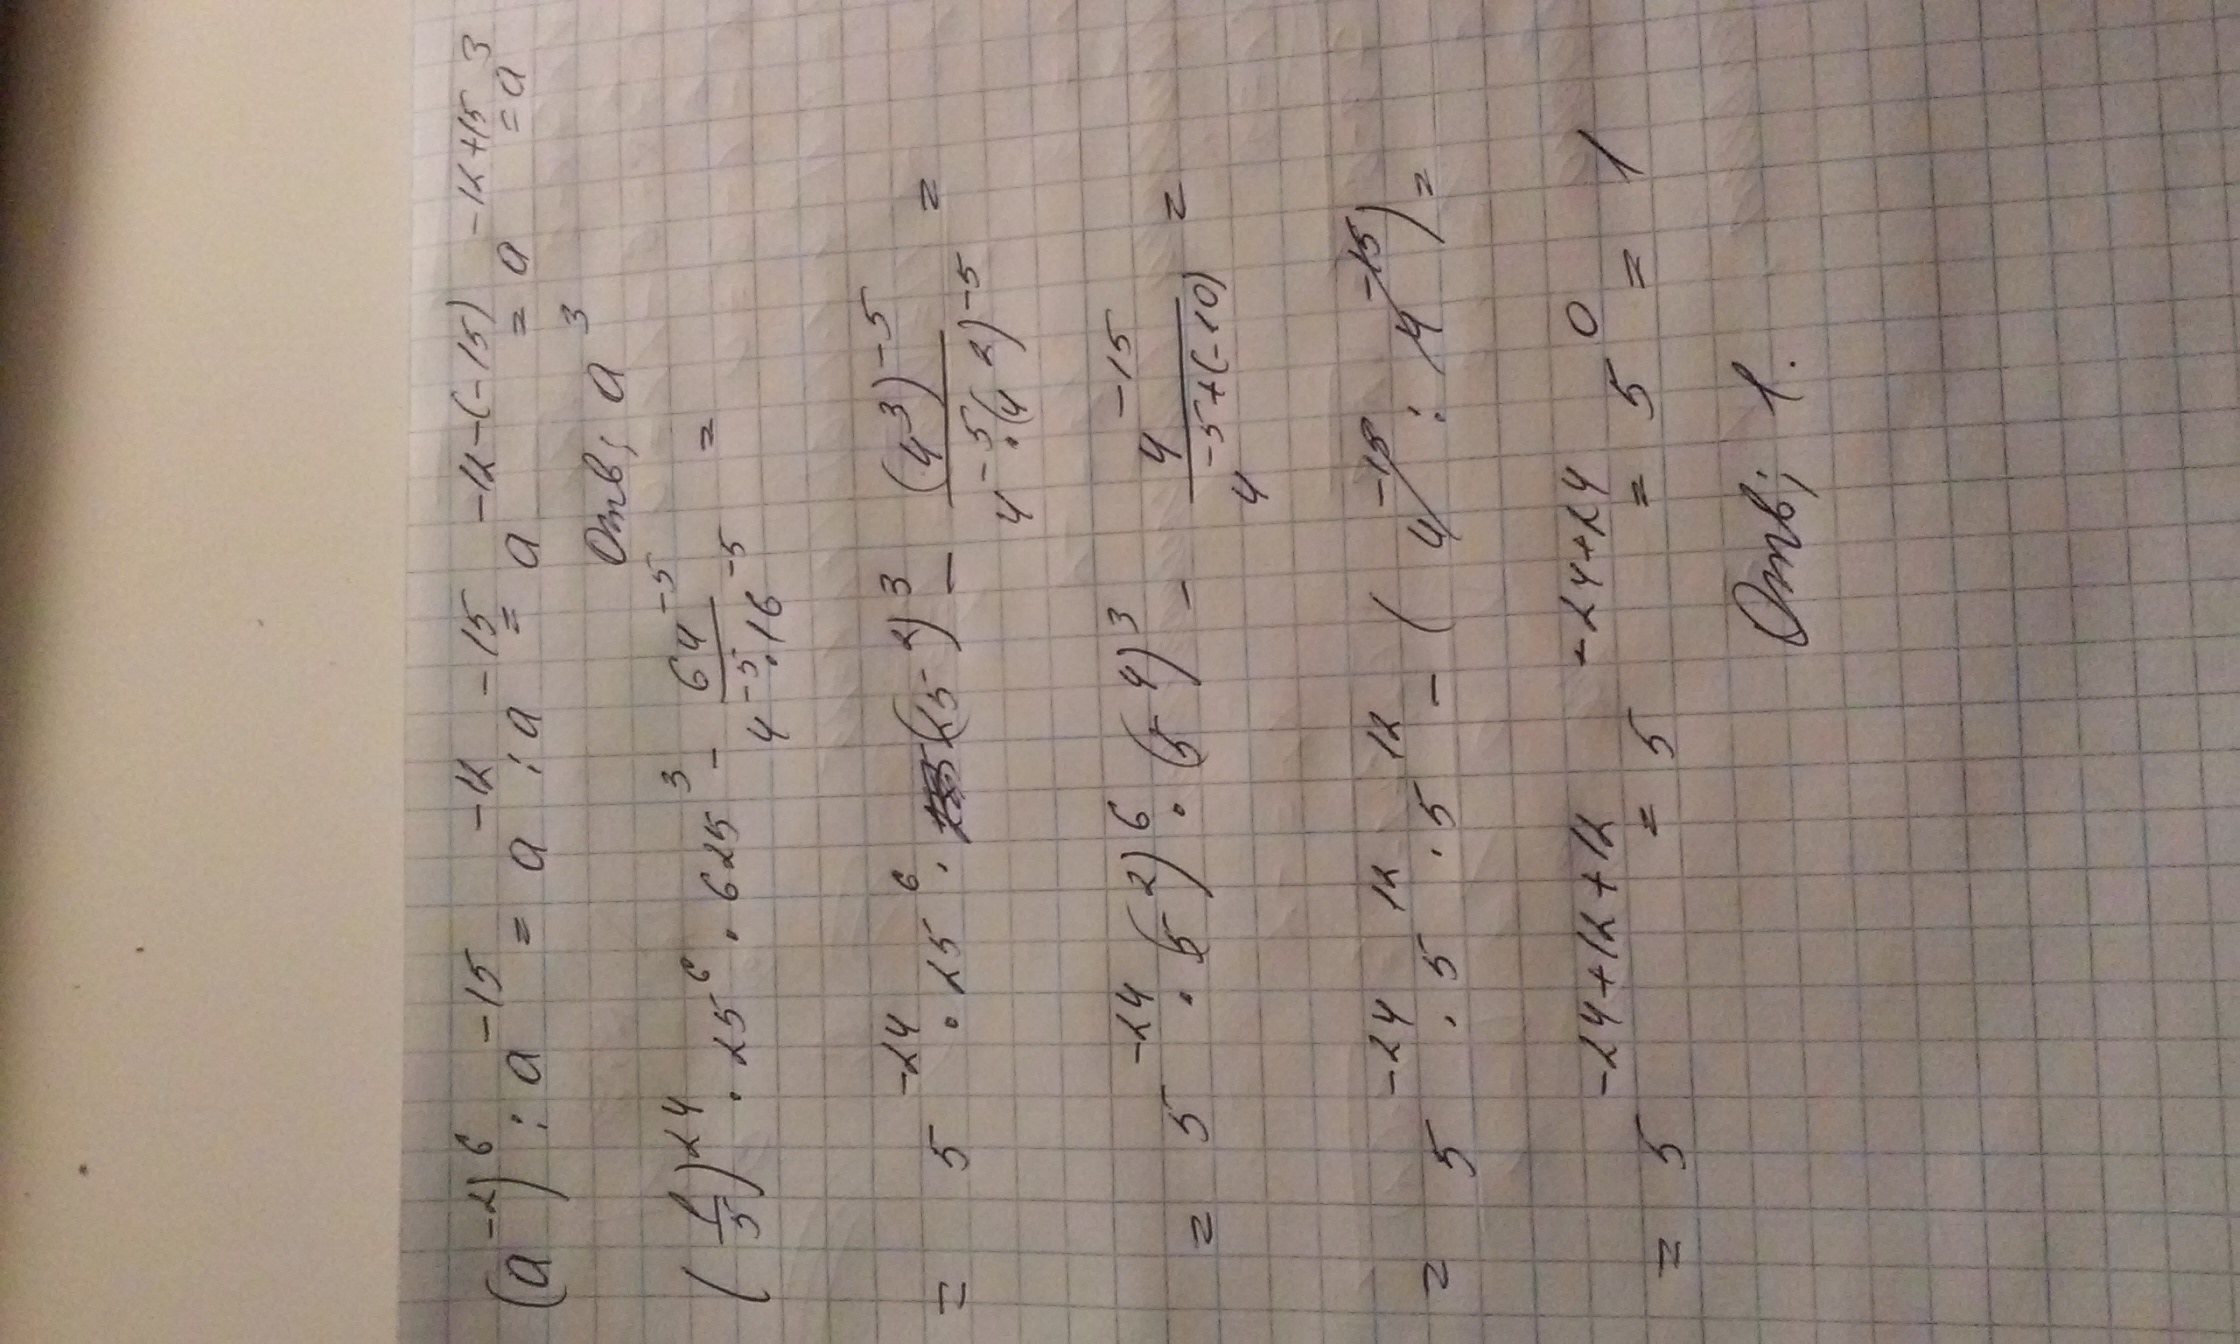 (a⁻²)⁶ : a⁻¹⁵ = a⁻¹² : a⁻¹⁵ = a⁻¹²⁻⁽⁻¹⁵⁾ = a⁻¹²⁺¹⁵ = a³
Отв; a³
(1/5)²⁴ · 25⁶ · 625³ - 64⁻⁵/(4⁻⁵ · 16⁻⁵) =
= 5⁻²⁴ · 25⁶ · (25²)³ - (4³)⁻⁵/(4⁻⁵ · (4²)⁻⁵) =
= 5⁻²⁴ · (5²)⁶ · (5⁴)³ - 4⁻¹⁵/4⁻⁵⁺⁽⁻¹⁰⁾ =
= 5⁻²⁴ · 5¹² · 5¹² - (4⁻¹⁵ : 4⁻¹⁵) =
= 5⁻²⁴⁺¹²⁺¹² = 5⁻²⁴⁺²⁴ = 5⁰ = 1
Отв; 1.